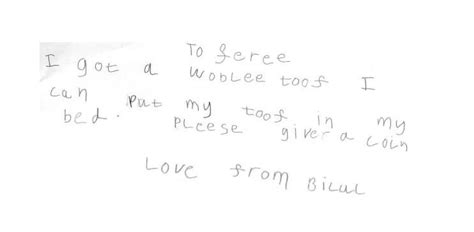 To feree
I got a woblee toof I
can put my toof in my
bed. PLeese giver a coin
Love from Bilal